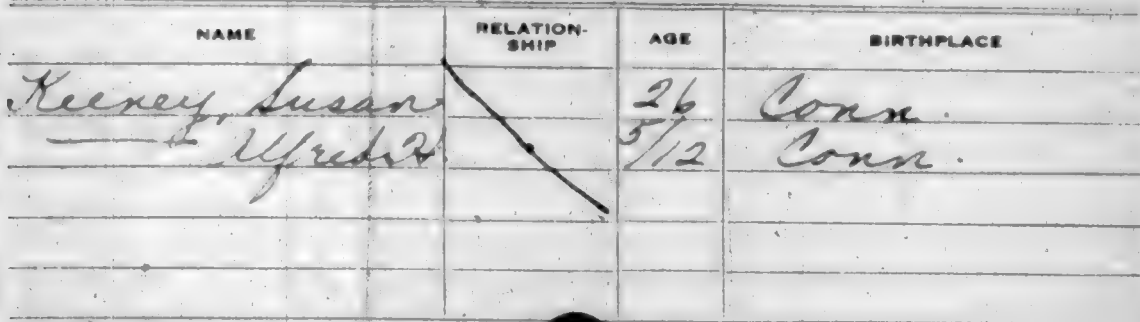 NAME RELATION-SHIP AGE BIRTHPLACE
Keeney, Susan 26 Conn.
—— Alfred H. 5/12 Conn.